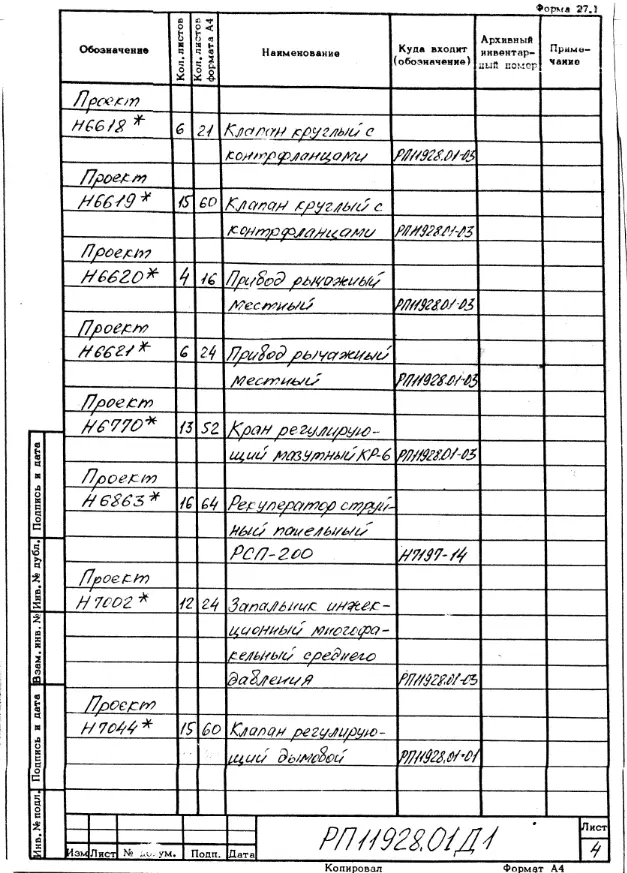 Форма 27.1
Обозначение
Кол. листов
Кол. листов формата А4
Наименование
Куда входит (обозначение)
Архивный инвентарный номер
Примечание
Проект
Н6618* 6 21 Клапан круглый с
контрфланцами РП11928.01-03
Проект
Н6619* 15 60 Клапан круглый с
контрфланцами РП11928.01-03
Проект
Н6620* 4 16 Привод рычажный
местный РП11928.01-03
Проект
Н6621* 6 24 Привод рычажный
местный РП11928.01-03
Проект
Н6770* 13 52 Кран регулирую-
щий мазутный КР-6 РП11928.01-03
Проект
Н6863* 16 64 Рекуператор струй-
ный панельный
РСП-200 Н7197-14
Проект
Н7002* 12 24 Запальник инжек-
ционный многофа-
кельный среднего
давления РП11928.01-03
Проект
Н7044* 15 60 Клапан регулирую-
щий дымовой РП11928.01-01
Инв. № подл.
Подпись и дата
Взам. инв. №
Инв. № дубл.
Подпись и дата
Изм Лист № докум. Подп. Дата
РП11928.01Д1
Лист
4
Копировал Формат А4